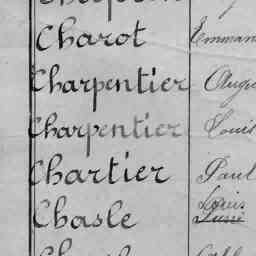 Charot Emman
Charpentier Augu
Charpentier Louis
Chartier Paul
Louis
Chasle